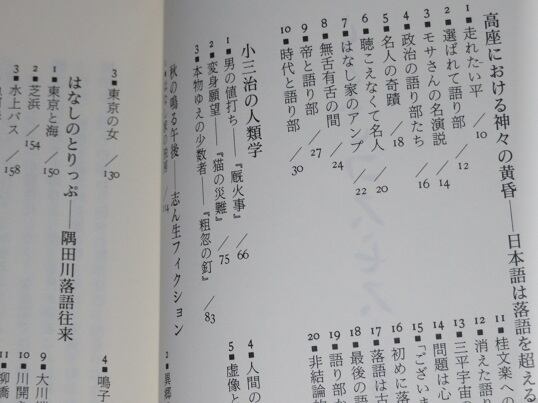 高座における神々の黄昏──日本語は落語を超える
1■走れたい平 /10
2■選ばれて語り部 /12
3■モサさんの名演説 /14
4■政治の語り部たち /16
5■名人の奇蹟 /18
6■聴こえなくて名人 /20
7■はなし家のアンプ /22
8■無舌有舌の間 /24
9■帝と語り部 /27
10■時代と語り部 /30
11■桂文楽への
12■消えた語
13■三平宇宙
14■問題は心
15■「ございま
16■初めに落
17■落語は古
18■最後の語
19■語り部か
20■非結論的
小三治の人類学
1■男の値打ち──『厩火事』 /66
2■変身願望──『猫の災難』 /75
3■本物ゆえの少数者──『粗忽の釘』 /83
4■人間の
5■虚像と
秋の鳴る午後──志ん生フィクション
2■異郷
3■東京の女 /130
4■鳴子
はなしのとりっぷ──隅田川落語往来
1■東京と海 /150
2■芝浜 /154
3■水上バス /158
9■大川
10■川開
11■柳橋